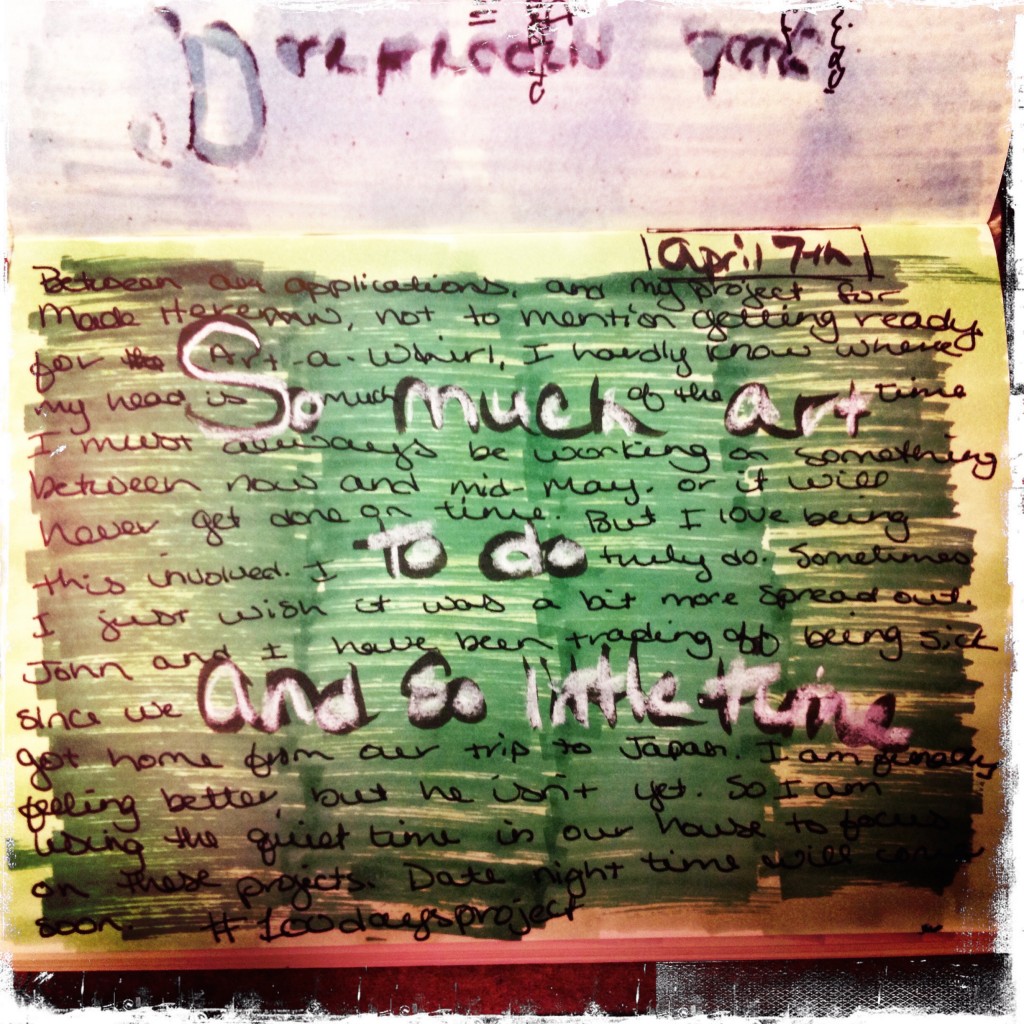 April 7th
Between art applications, and my project for
Made Here, not to mention getting ready
for Art-a-Whirl, I hardly know where
my head is much of the time
So much art
I must always be working on something
between now and mid-May. or it will
never get done on time. But I love being
To do
this involved. I truly do. Sometimes
I just wish it was a bit more spread out.
John and I have been trading off being sick
since we
And so little time
got home from our trip to Japan. I am finally
feeling better, but he isn't yet. So I am
using the quiet time in our house to focus
on these projects. Date night time will come
soon. #100daysproject